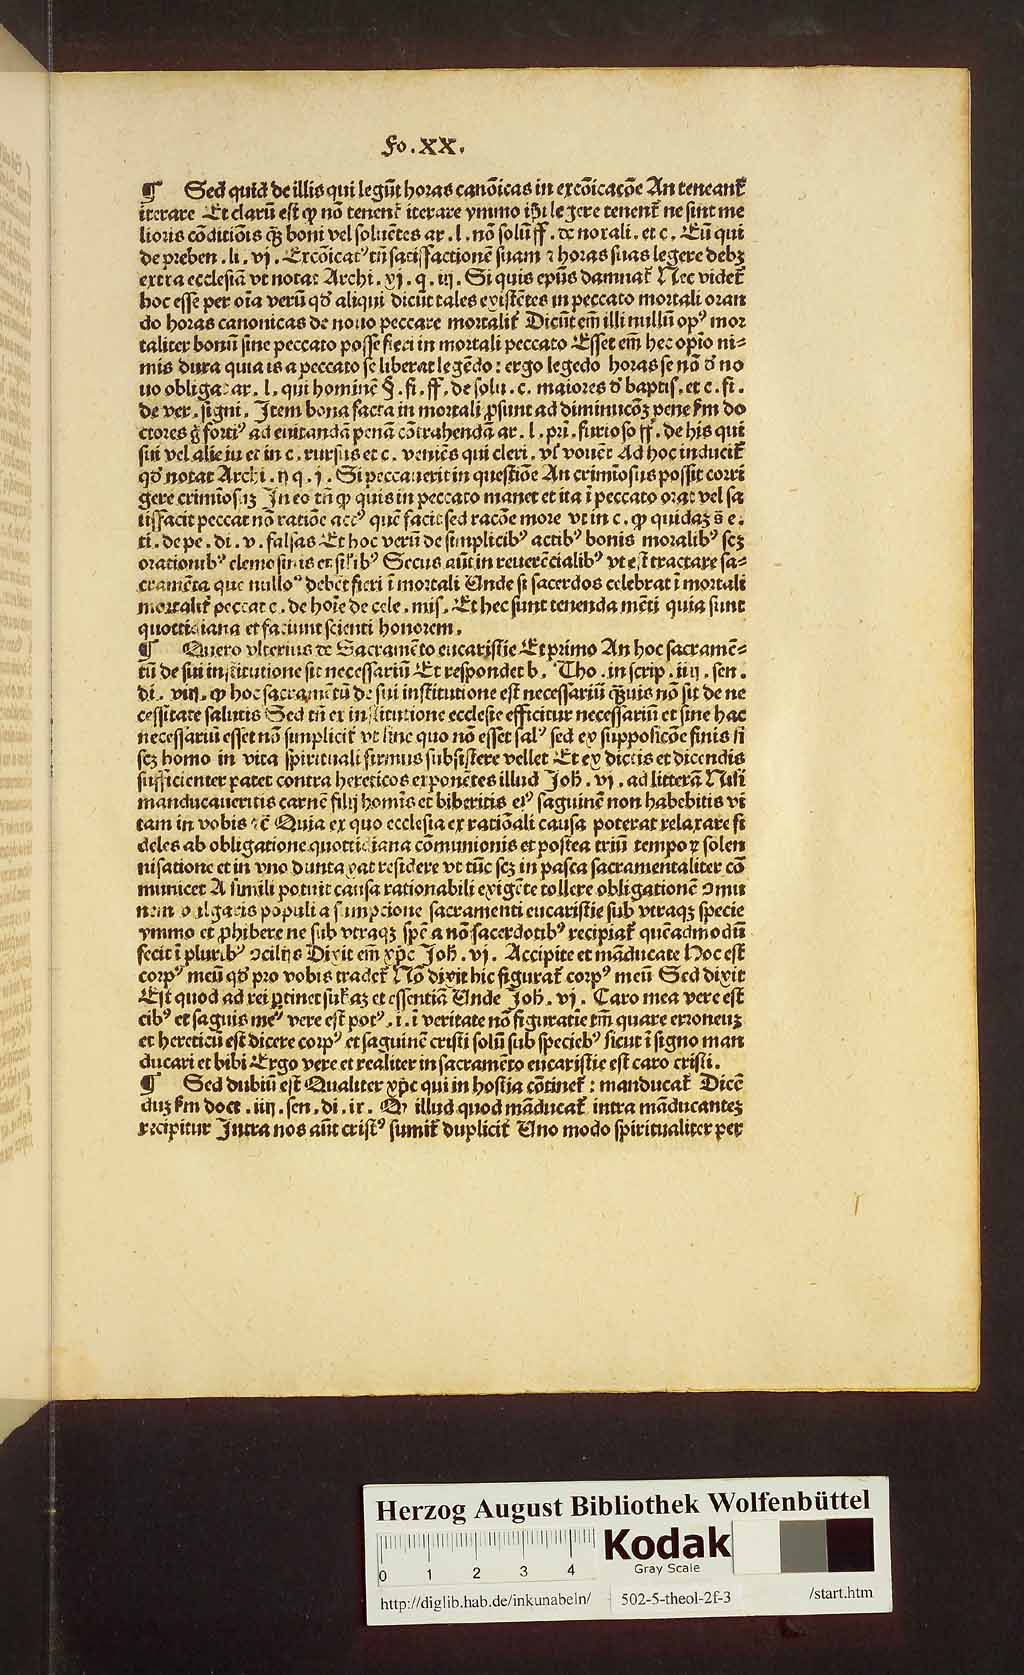 Fo.XX.
¶ Sed quid de illis qui legūt horas canōicas in excōicacōe An teneant̄
iterare Et clarū est ꝙ nō tenent̄ iterare ymmo ip̄i legere tenent̄ ne sint me
lioris cōditiōis q̄ȝ boni vel soluētes ar . l . nō solū ff . de noxali . et c . Eū qui
de preben . li . vj . Excōicatꝰ tn̄ satisfactionē suam ⁊ horas suas legere debȝ
extra ecclesiā vt notat Archi . xj . q . iij . Si quis ep̄us damnat̄ Nec videt̄
hoc esse per oīa verū qd̄ aliqui dicūt tales existētes in peccato mortali oran
do horas canonicas de nouo peccare mortalit̄ Dicūt em̄ illi nullū opꝰ mor
taliter bonū sine peccato posse fieri in mortali peccato Esset em̄ hec opīo ni-
mis dura quia is a peccato se liberat legēdo : ergo legēdo horas se nō d̄ no
uo obligat ar . l . qui hominē §. fi . ff . de solu . c . maiores d̄ baptis . et c . fi .
de ver . signi . Item bona facta in mortali ꝓsunt ad diminucōȝ pene sm̄ do
ctores g̊ fortiꝰ ad euitandā penā cōtrahendā ar . l . pri . furioso ff . de his qui
sui vel alie iu et in c . rursus et c . veniēs qui cleri . vl̄ vouēt Ad hoc inducit̄
qd̄ notat Archi . ij q . j . Si peccauerit in questiōe An crimīosus possit corri
gere crimīosuȝ In eo tn̄ ꝙ quis in peccato manet et ita ī peccato orat vel sa
tisfacit peccat nō ratiōe actꝰ quē facit sed racōe more vt in c . ꝙ quidaȝ s̄ e .
ti . de pe . di . v . falsas Et hoc verū de simplicibꝰ actibꝰ bonis moralibꝰ scȝ
orationibꝰ elemosinis et sil̄ibꝰ Secus aūt in reuerēcialibꝰ vt est tractare sa-
cramēta que nullo° debēt fieri ī mortali Unde si sacerdos celebrat ī mortali
mortalit̄ peccat c . de hoīe de cele . mis . Et hec sunt tenenda mēti quia sunt
quottidiana et faciunt scienti honorem .
¶ Quero vlterius de Sacramēto eucaristie Et primo An hoc sacramē-
tū de sui institutione sit necessariū Et respondet b . Tho . in scrip . iiij . sen .
di . viij . ꝙ hoc sacramētū de sui institutione est necessariū q̄ȝuis nō sit de ne
cessitate salutis Sed tn̄ ex institutione ecclesie efficitur necessariū et sine hac
necessariū esset nō simplicit̄ vt sine quo nō esset salꝰ sed ex supposicōe finis si
scȝ homo in vita spirituali firmus subsistere vellet Et ex dictis et dicendis
sufficienter patet contra hereticos exponētes illud Joh̄ . vj . ad litterā Nisi
manducaueritis carnē filij homīs et biberitis eiꝰ saguinē non habebitis vi
tam in vobis ⁊c̄ Quia ex quo ecclesia ex rationāli causa poterat relaxare fi
deles ab obligatione quottidiana cōmunionis et postea triū tempoꝝ solen
nisatione et in vno duntaxat residere vt tūc scȝ in pasca sacramentaliter cō
municet A simili potuit causa rationabili exigēte tollere obligationē ꝯmu
nem vulgaris populi a sumpcione sacramenti eucaristie sub vtraqȝ specie
ymmo et ꝓhibere ne sub vtraqȝ spē a nō sacerdotibꝰ recipiat̄ quēadmodū
fecit ī pluribꝰ ꝯcilijs Dixit em̄ xp̄c Joh̄ . vj . Accipite et māducate Hoc est
corpꝰ meū qd̄ pro vobis tradet̄ Nō dixit hic figurat̄ corpꝰ meū Sed dixit
Est quod ad rei ꝑtinet sub̄aȝ et essentiā Unde Joh̄ . vj . Caro mea vere est
cibꝰ et saguis meꝰ vere est potꝰ . i . ī veritate nō figuratīe tm̄ quare erroneuȝ
et hereticū est dicere corpꝰ et saguinē cristi solū sub speciebꝰ sicut ī signo man
ducari et bibi Ergo vere et realiter in sacramēto eucaristie est caro cristi .
¶ Sed dubiū est Qualiter xp̄c qui in hostia cōtinet̄ : manducat̄ Dicē
duȝ sm̄ doct . iiij . sen . di . ix . Qꝫ illud quod māducat̄ intra māducanteȝ
recipitur Intra nos aūt cristꝰ sumit̄ duplicit̄ Uno modo spiritualiter per
Herzog August Bibliothek Wolfenbüttel
0 1 2 3 4
Kodak
Gray Scale
http://diglib.hab.de/inkunabeln/ 502-5-theol-2f-3 /start.htm